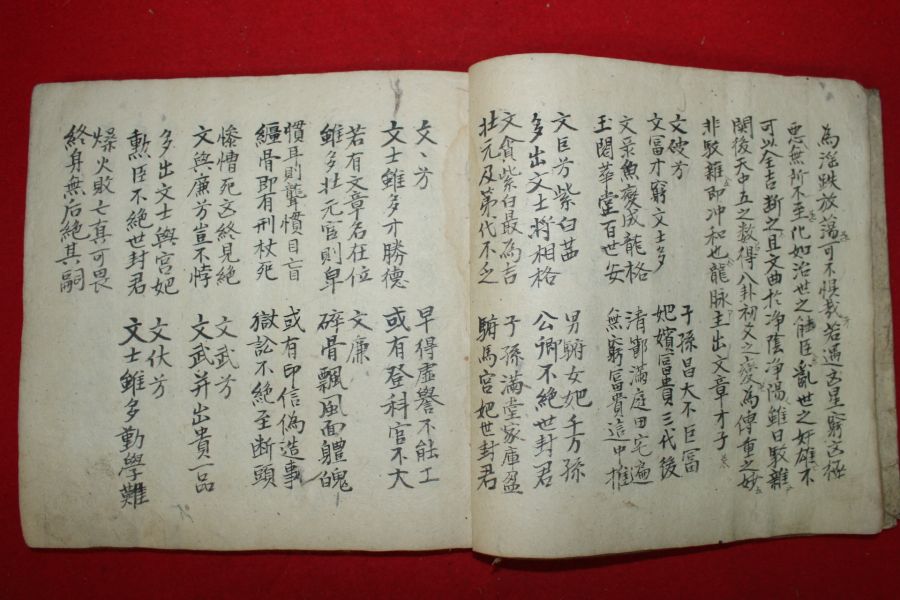 為淫跌放蕩可不惧哉若遇凶星窮凶極
惡無所不至化如治世之能臣亂世之奸雄不
可以全吉断之且文曲於净陰净陽雖曰駁雜
関後天中五之数得八卦初爻之變為傳重之妙
非駁雜即冲和也龍脉主出文章才子
文破芳
文富才窮文士多
文彔魚變成龍格
玉関華堂百世安
子孫昌大不巨富
妃嬪富貴三代後
清滿庭田宅遍
無窮冨貴這中推
文巨芳紫白茁
多出文士將相格
文貪紫白最為吉
壮元及第代不乏
男駙女妃千万孫
公卿不絶世封君
子孫満堂家庫盈
駙馬宮妃世封君
文、芳
文士雖多才勝德
若有文章名在位
雖多壮元官則卑
慣耳則聾慣目盲
纒骨即有刑杖死
惨憯死凶終見絶
文與廉芳豈不悖
多出文士與宮妃
勲臣不絶世封君
爆火敗亡真可畏
終身無后絶其嗣
早得虛譽不能工
或有登科官不大
文廉
碎骨飄風面軆醜
或有印信偽造事
獄訟不絶至断頭
文武芳
文武并出貴一品
文伏芳
文士雖多勤學難